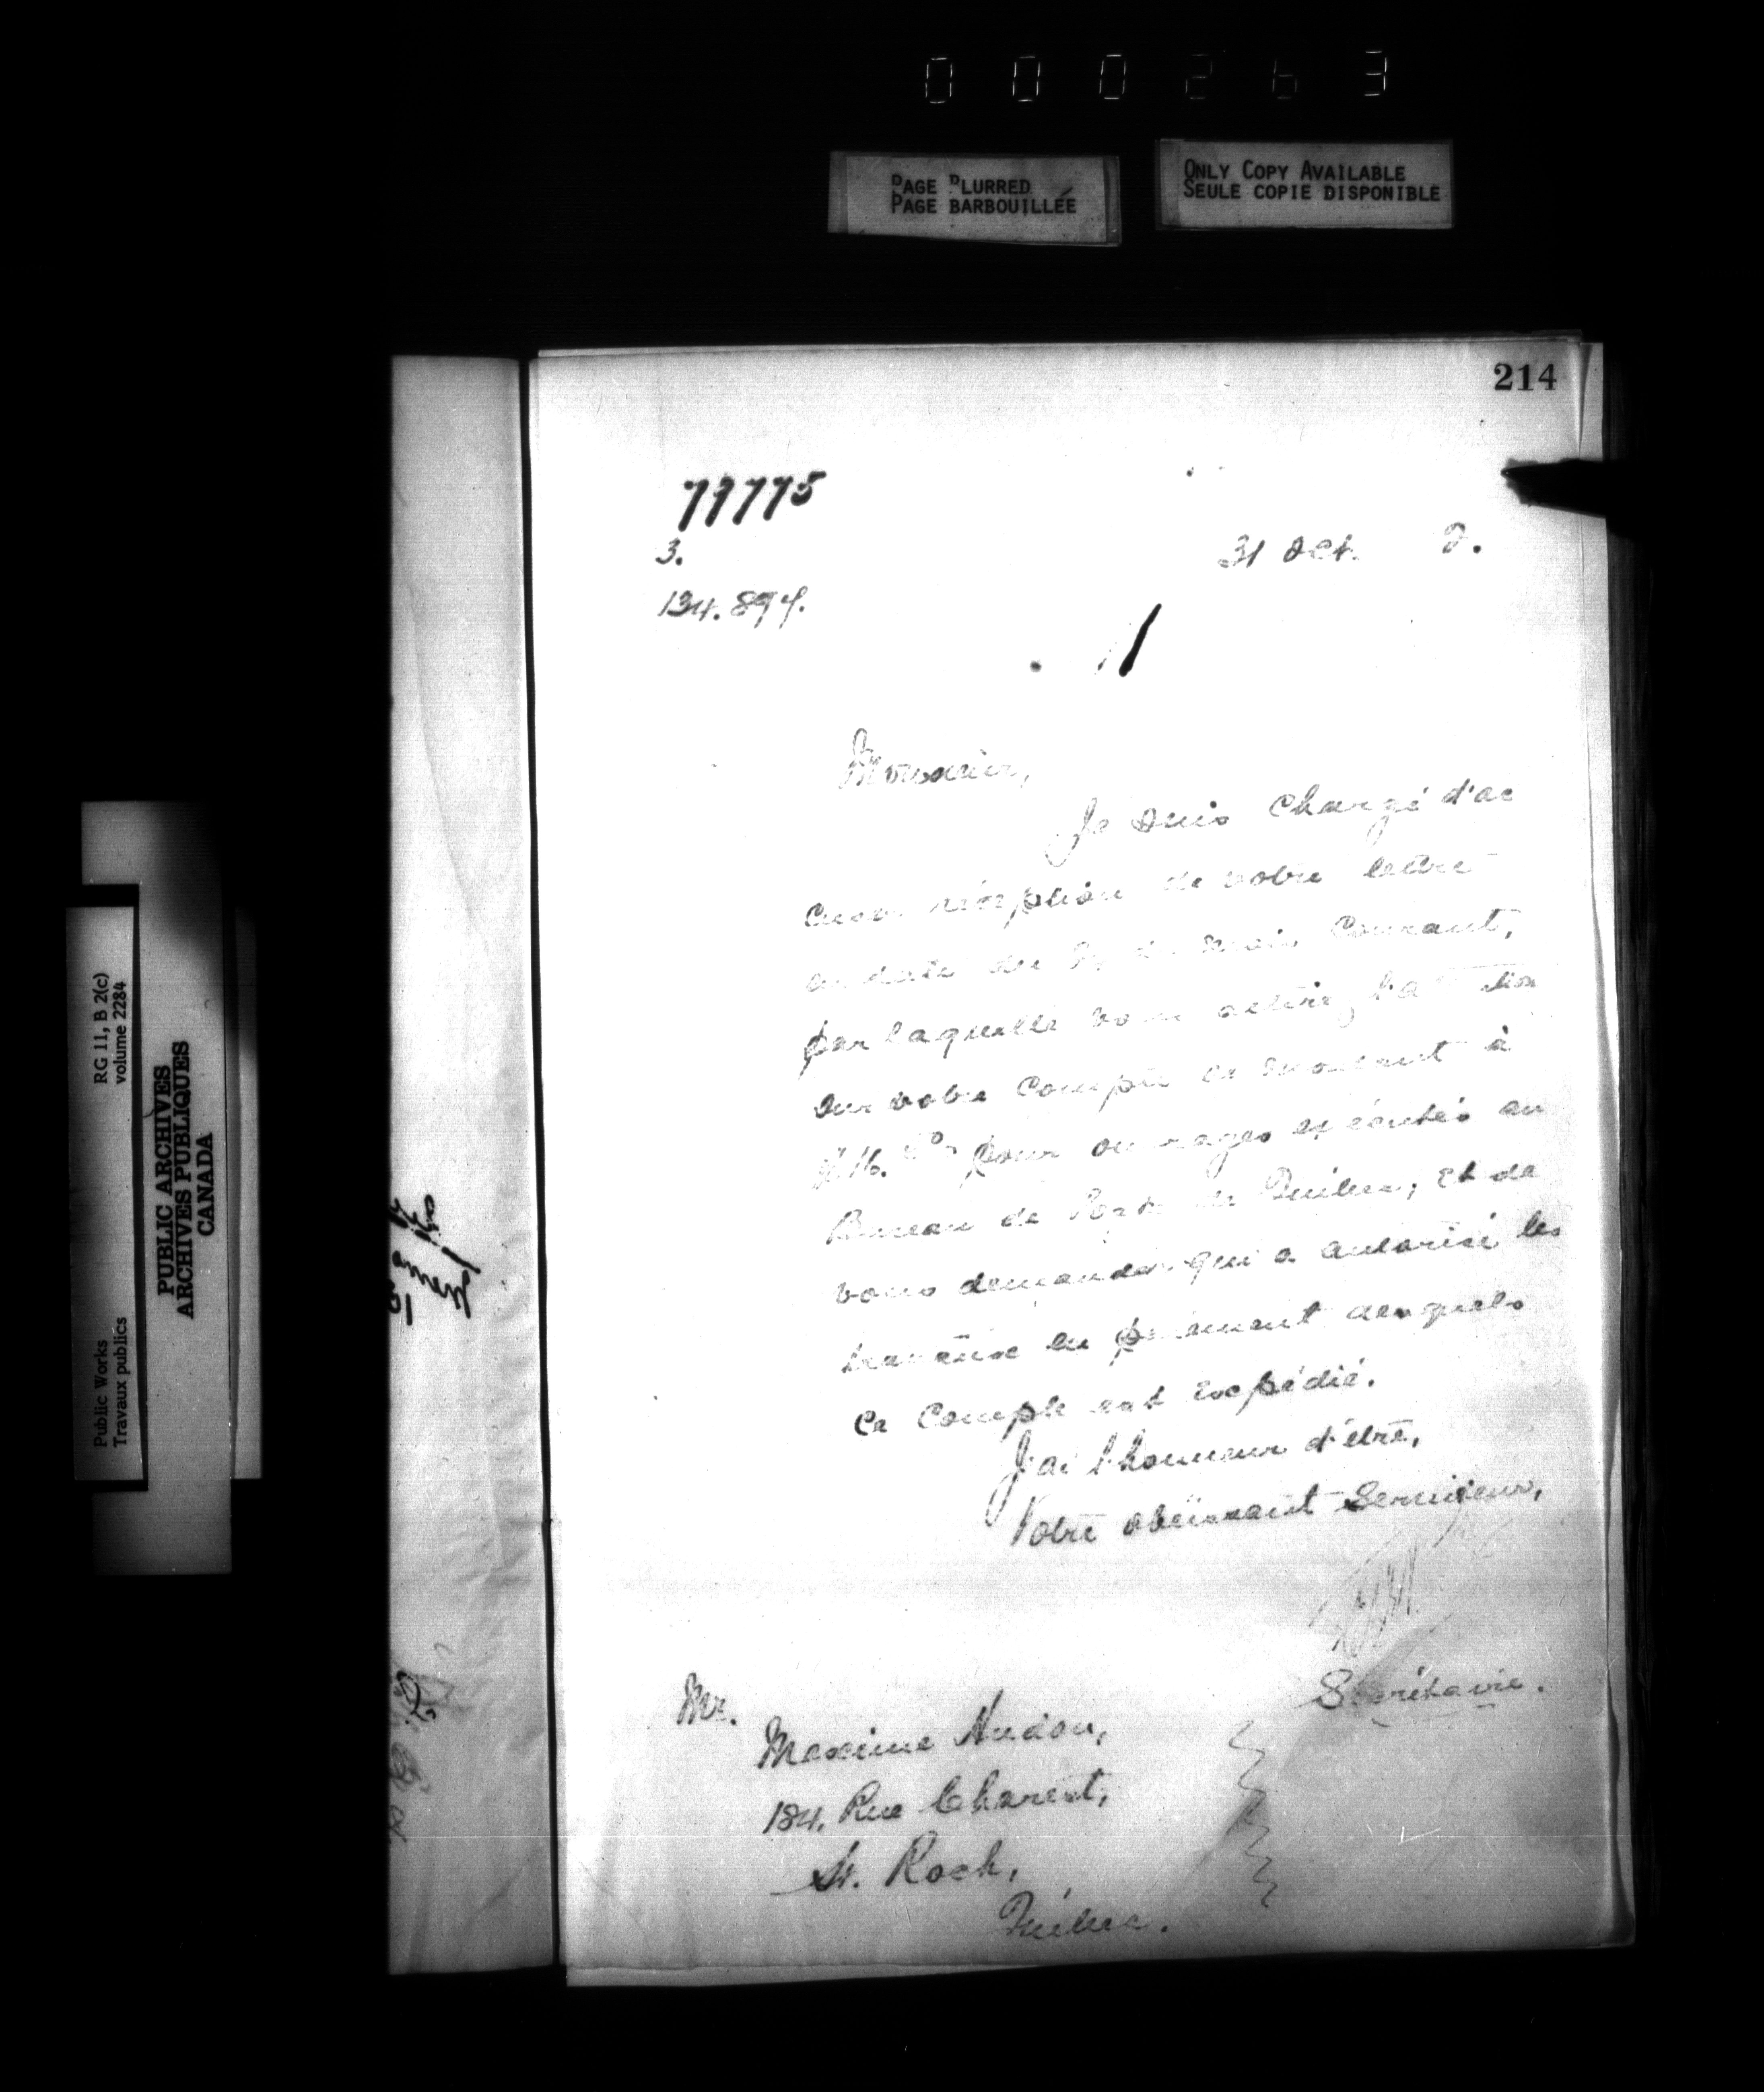 000263
PAGE BLURRED
PAGE BARBOUILLÉE
ONLY COPY AVAILABLE
SEULE COPIE DISPONIBLE
214
77775
3.
31 Oct. 2.
134.894.
Monsieur,
Je suis chargé d'ac
cuser réception de votre lettre
en date du du mois courant,
par laquelle vous attirez l'attention
sur votre compte se montant à
pour ouvrages exécutés au
Bureau de Poste de Québec, et de
vous demander qui a autorisé les
travaux en paiement desquels
ce compte est expédié.
J'ai l'honneur d'être,
Votre obéissant Serviteur,
Secrétaire.
Mr.
Maxime Hudon,
184, Rue Charest,
St. Roch,
Québec.
RG 11, B 2(c)
volume 2284
Public Works
Travaux publics
PUBLIC ARCHIVES
ARCHIVES PUBLIQUES
CANADA